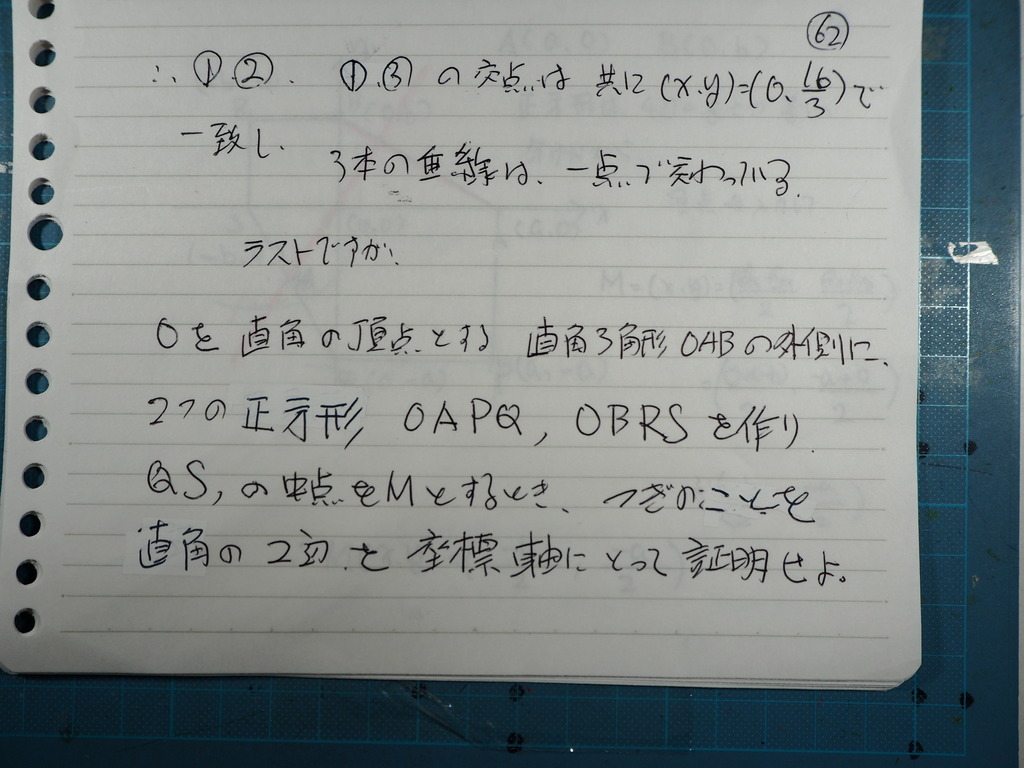 62
∴ ①②. ①.③ の交点は 共に (x.y)=(0. 16/3)で
一致し. 3本の垂線は、一点で交わっている.
ラストですが.
Oを 直角の頂点とする 直角3角形OABの外側に.
2つの 正方形 OAPQ, OBRS を作り
QS, の中点をMとするとき、つぎのことを
直角の2辺を座標軸にとって証明せよ。